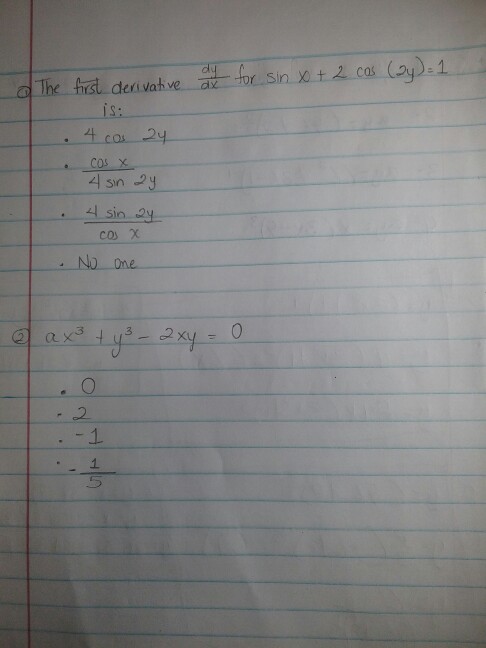 ① The first derivative dy/dx for sin x + 2 cos (2y) = 1
is:
• 4 cos 2y
• cos x / 4 sin 2y
• 4 sin 2y / cos x
• No one
② ax³ + y³ - 2xy = 0
• 0
• 2
• -1
• - 1/5